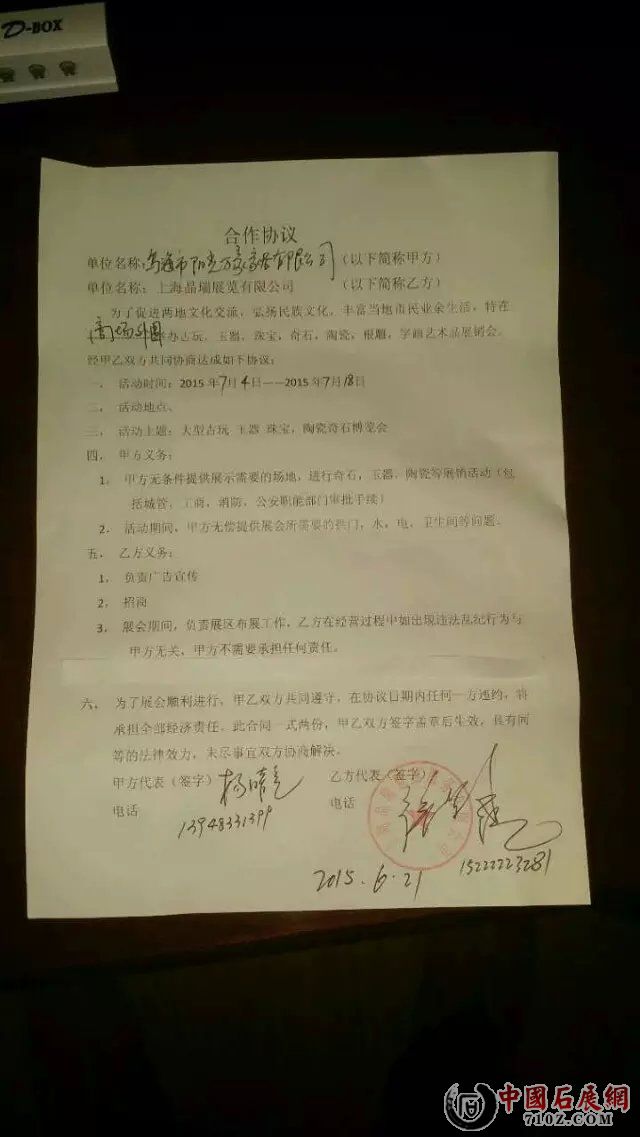 D-BOX
合作协议
单位名称：乌海市阳光万家 有限公司（以下简称甲方）
单位名称：上海晶瑞展览有限公司（以下简称乙方）
为了促进两地文化交流，弘扬民族文化，丰富当地市民业余生活，特在
商场外围 举办古玩，玉器，珠宝，奇石，陶瓷，根雕，字画艺术品展销会。
经甲乙双方共同协商达成如下协议：
一、 活动时间：2015年7月4日——2015年7月18日
二、 活动地点、
三、 活动主题：大型古玩 玉器 珠宝，陶瓷奇石博览会
四、 甲方义务：
1、 甲方无条件提供展示需要的场地，进行奇石，玉器，陶瓷等展销活动（包
括城管，工商，消防，公安职能部门审批手续）
2、 活动期间，甲方无偿提供展会所需要的拱门，水，电，卫生间等问题。
五、 乙方义务：
1、 负责广告宣传
2、 招商
3、 展会期间，负责展区布展工作，乙方在经营过程中如出现违法乱纪行为与
甲方无关，甲方不需要承担任何责任。
六、 为了展会顺利进行，甲乙双方共同遵守，在协议日期内任何一方违约，将
承担全部经济责任。此合同一式两份，甲乙双方签字盖章后生效，具有同
等的法律效力，未尽事宜双方协商解决。
甲方代表（签字） 杨晴 乙方代表（签字）
电话 13948331399 电话 15222223281
2015.6.21
中國石展網
710Z.COM